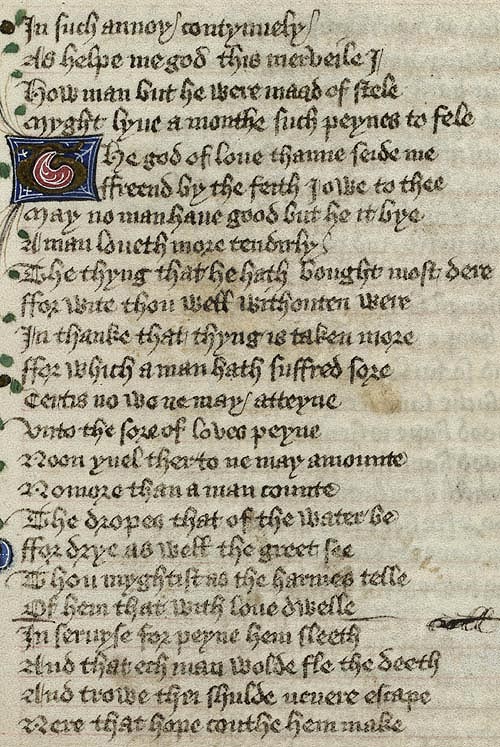 In such annoy / contynuely /
As helpe me god this merveile I
How man but he were maad of stele
Myght lyue a monthe such peynes to fele
The god of loue thanne seide me
ffreend by the feith I owe to thee
May no man haue good but he it bye
A man loueth more tendirly /
The thyng that he hath bought most dere
ffor wite thou well withouten were
In thanke that thyng is taken more
ffor which a man hath suffred sore
Certis no wo ne may / atteyne
Vnto the sore of loves peyne
Noon yuel therto ne may amounte
No more than a man counte
The dropes that of the water be
ffor drye as well the greet see
Thou myghtist as the harmes telle
Of hem that with loue dwelle
In seruyse for peyne hem sleeth
And that ech man wolde fle the deeth
And trowe thei shulde neuere escape
Nere that hope couthe hem make